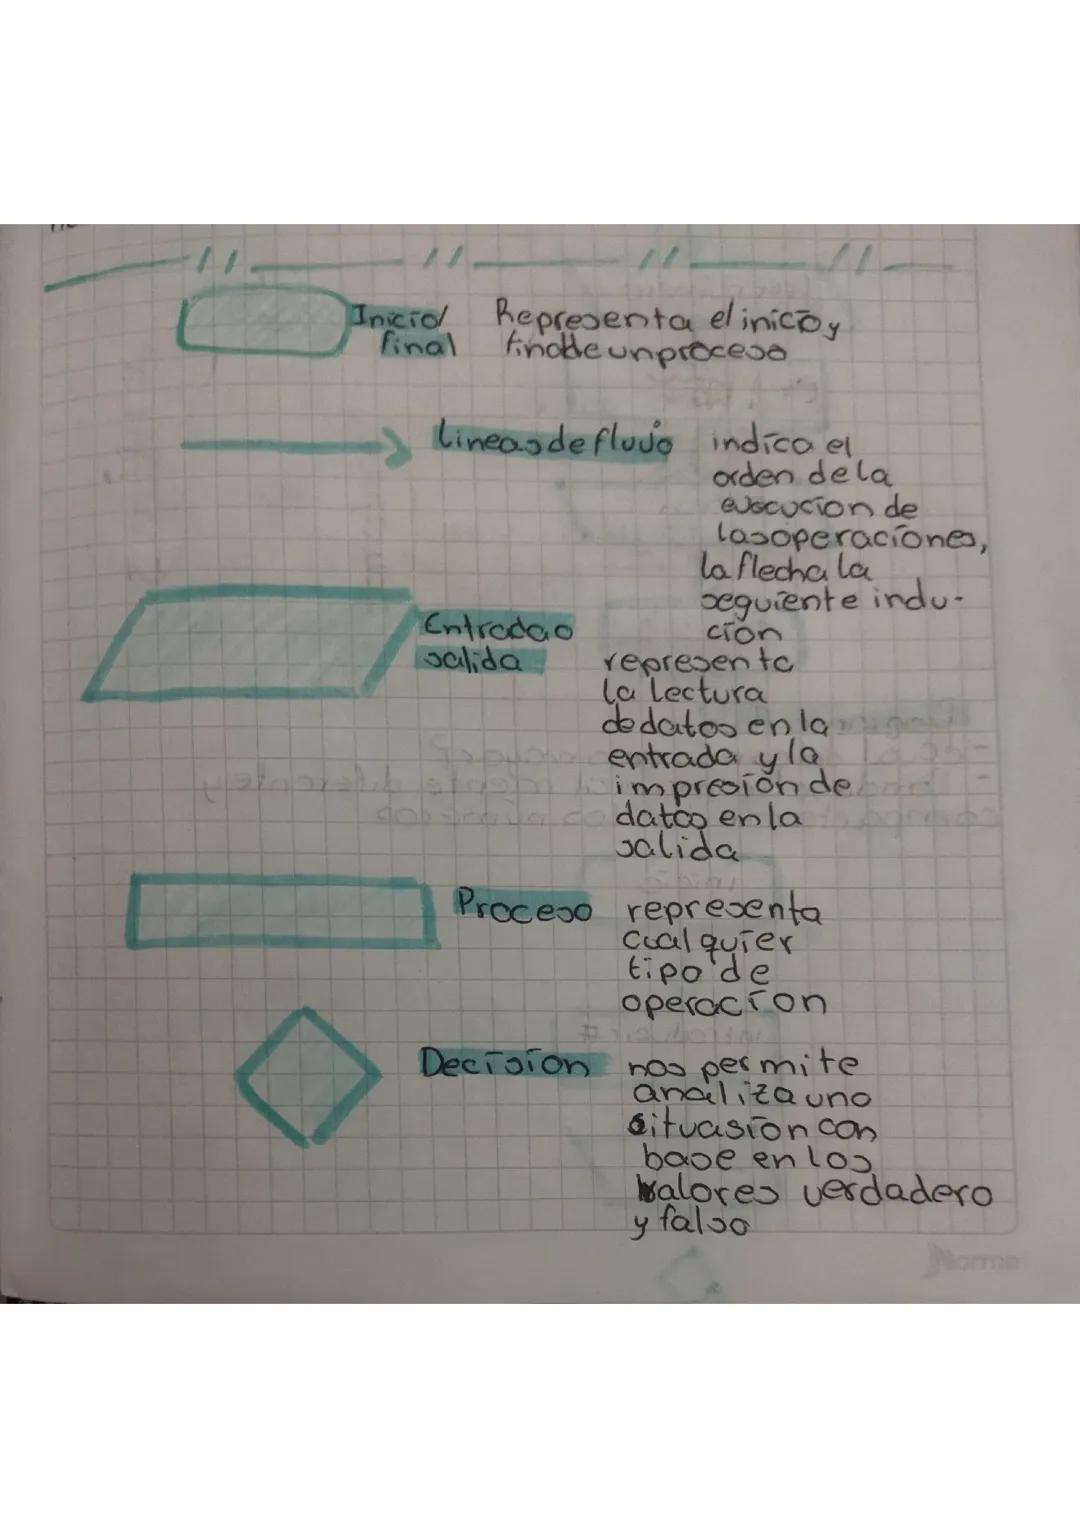 Inicio/ Representa el inicio y
final final de un proceso
Lineas de flujo indica el
orden de la
ejecucion de
las operaciones,
la flecha la
seguiente indu-
cion
Entrada o
salida representa
la lectura
de datos en la
entrada y la
impresión de
datos en la
salida
Proceso representa
cualquier
tipo de
operacion
Decision nos permite
analiza uno
situasion con
base en los
valores verdadero
y falso
Norma